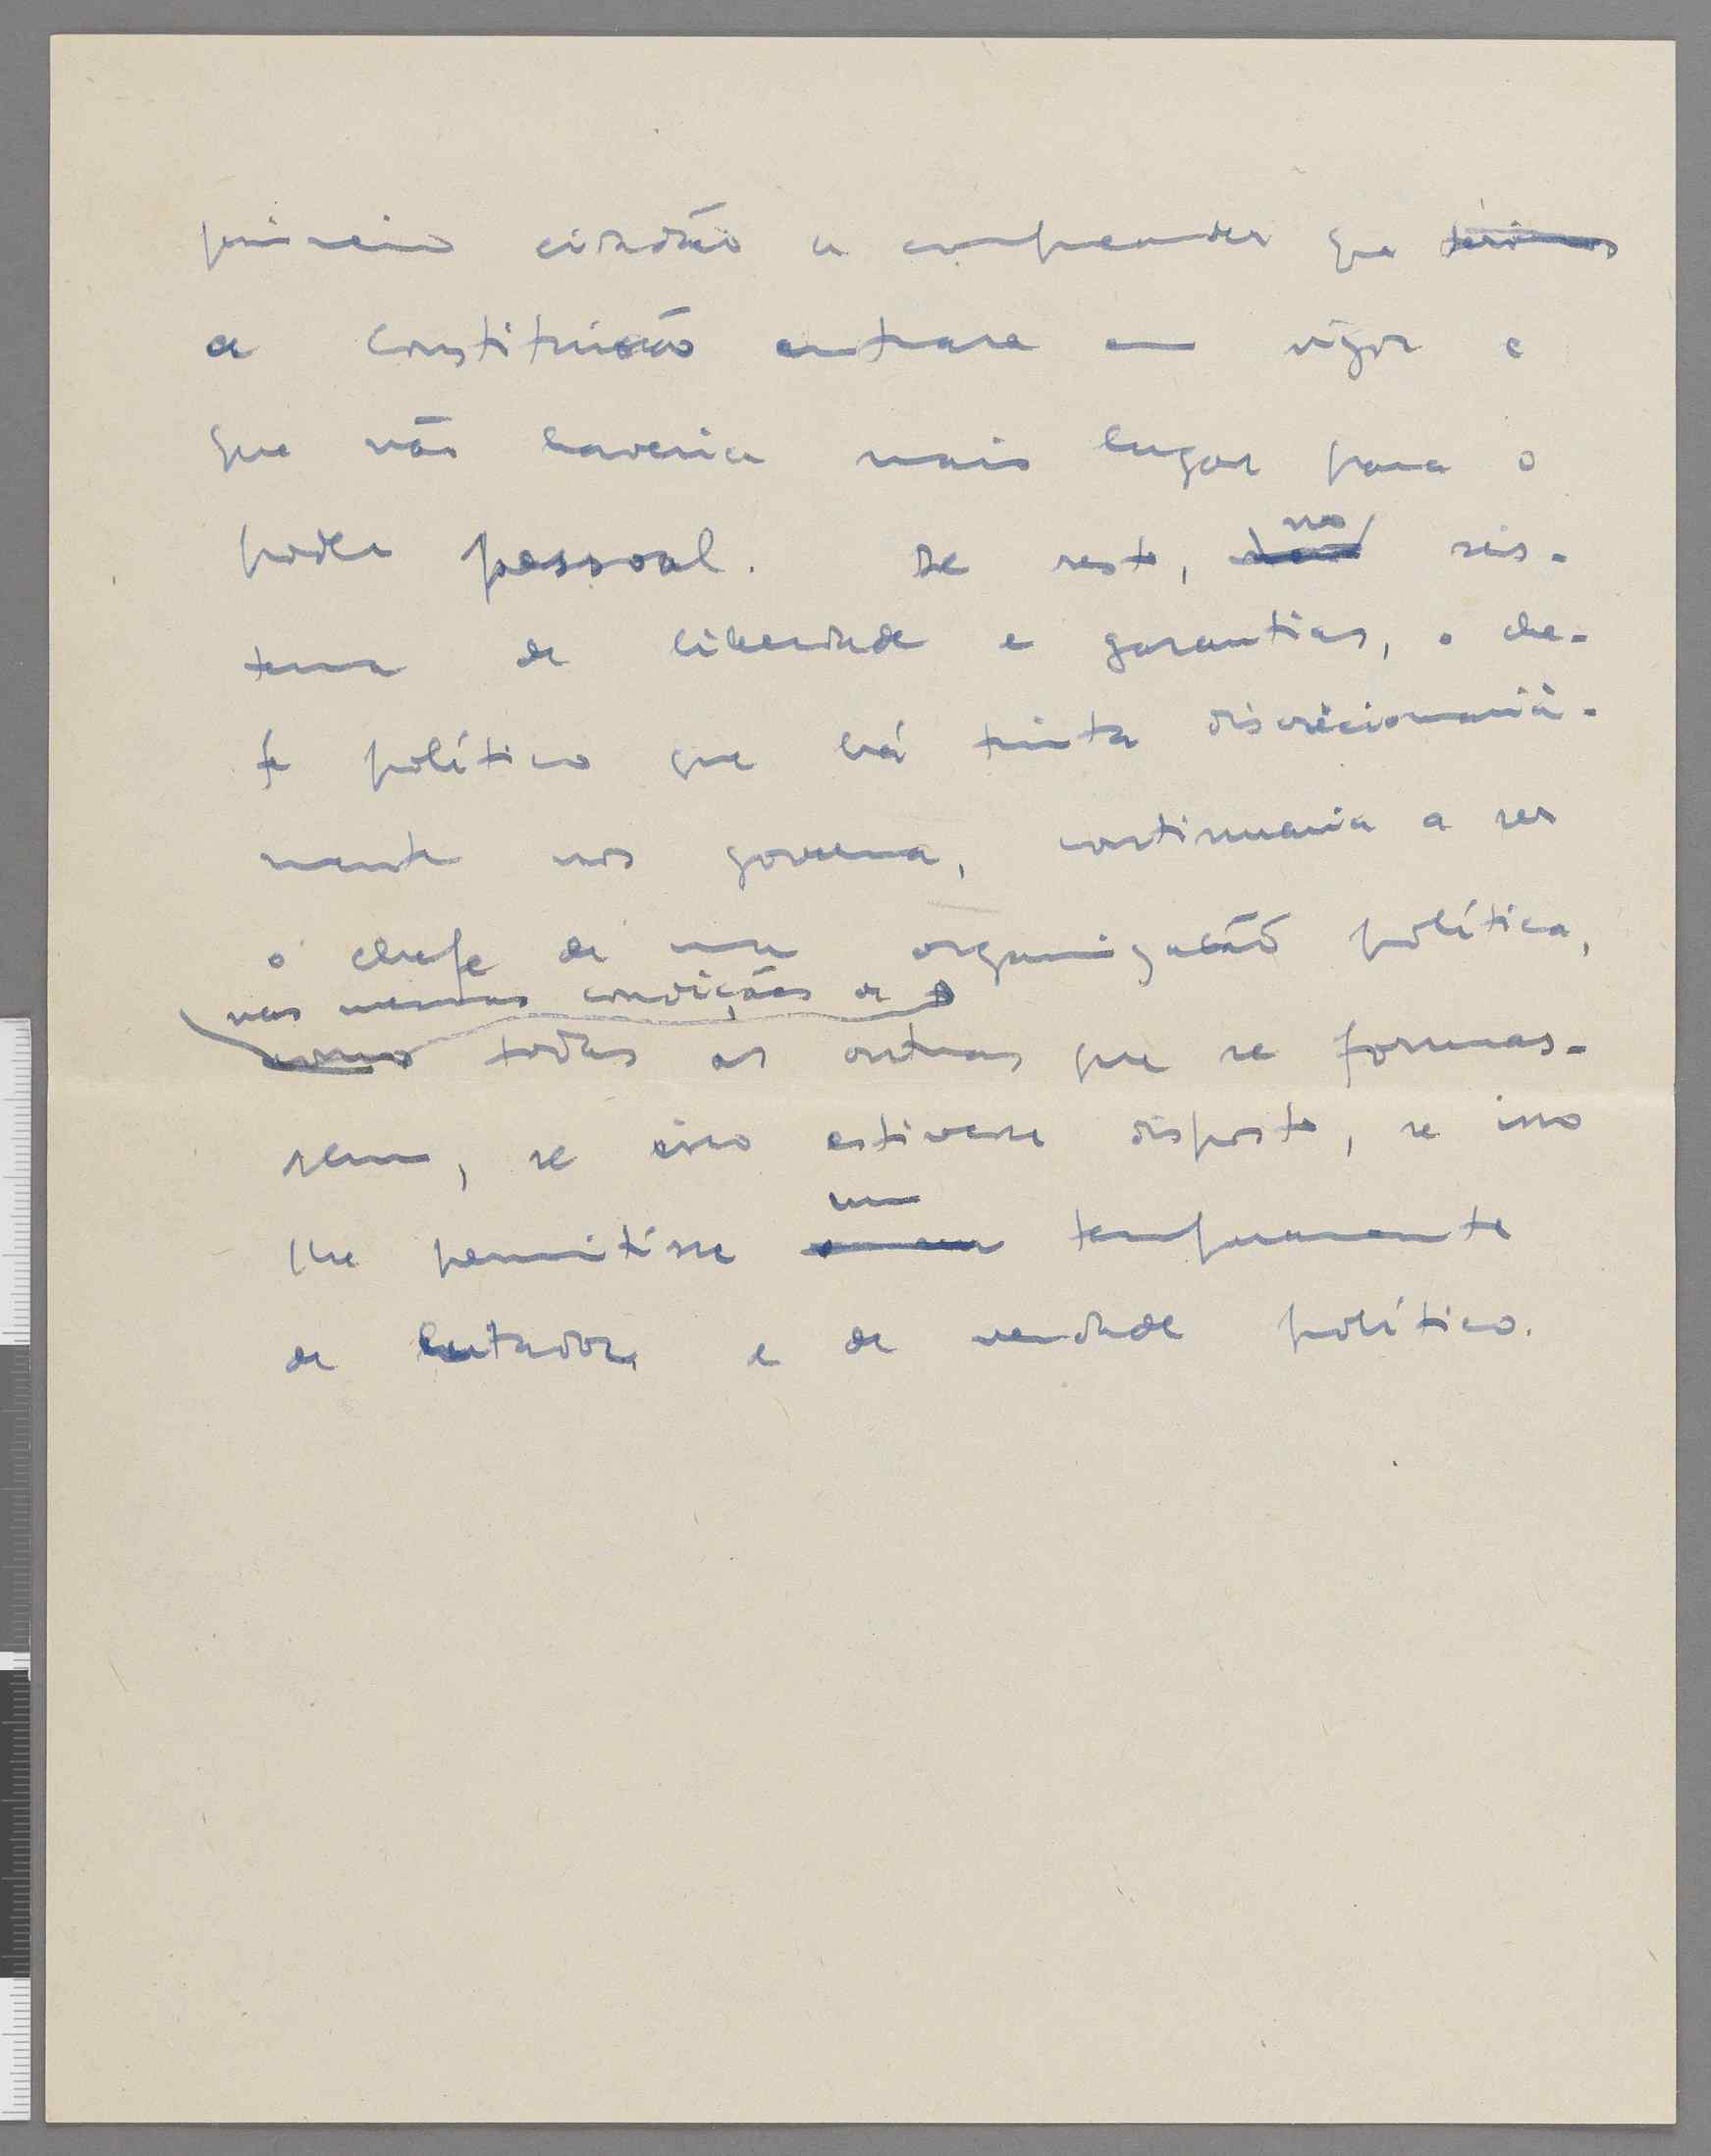 primeiro cidadão a compreender que teríamos
a Constituição entrara em vigor e
que não haveria mais lugar para o
poder pessoal. De resto, no sis-
tema de liberdade e garantias, o che-
fe político que há trinta discricionàri-
mente nos governa, continuaria a ser
o chefe de uma organização política,
nas mesmas condições de
como todas as outras que se formas-
sem, se isso estivesse disposto, se isso
lhe permitisse um temperamento
de lutador e de verdade político.